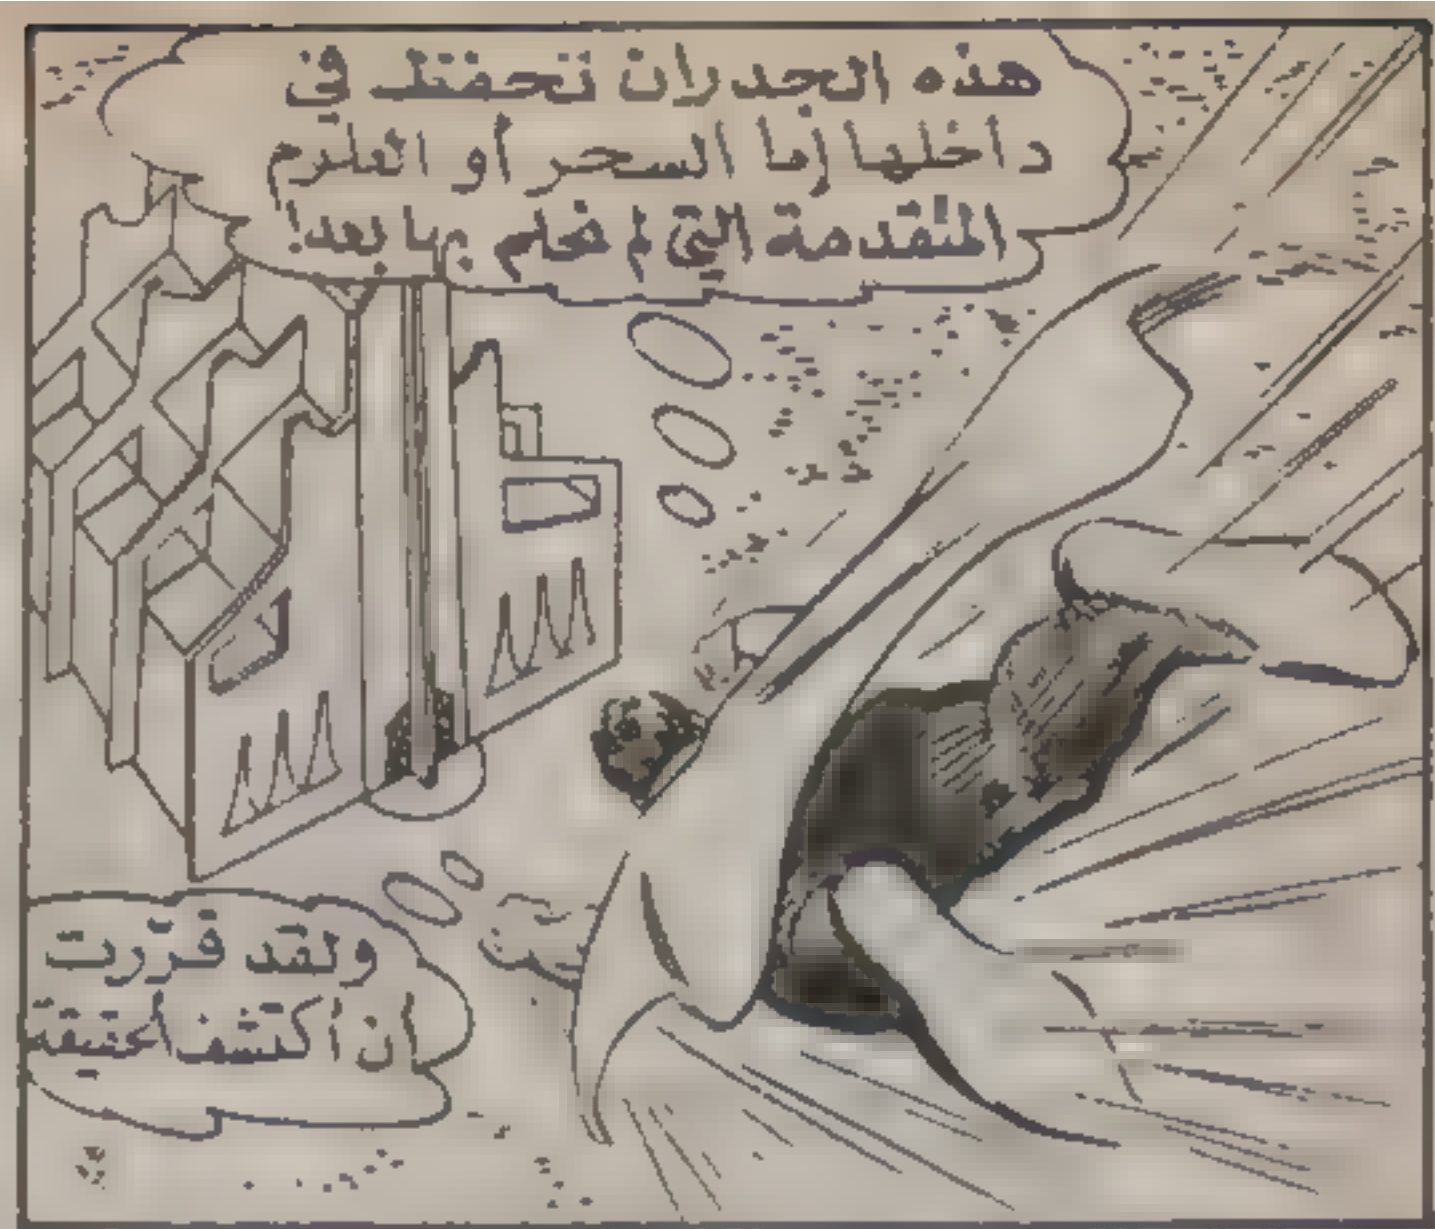 هذه الجدران تحفظ في
داخلها إما السحر أو العلوم
المتقدمة التي لم نحلم بها بعد!
ولقد قرّرت
أن أكتشف الحقيقة